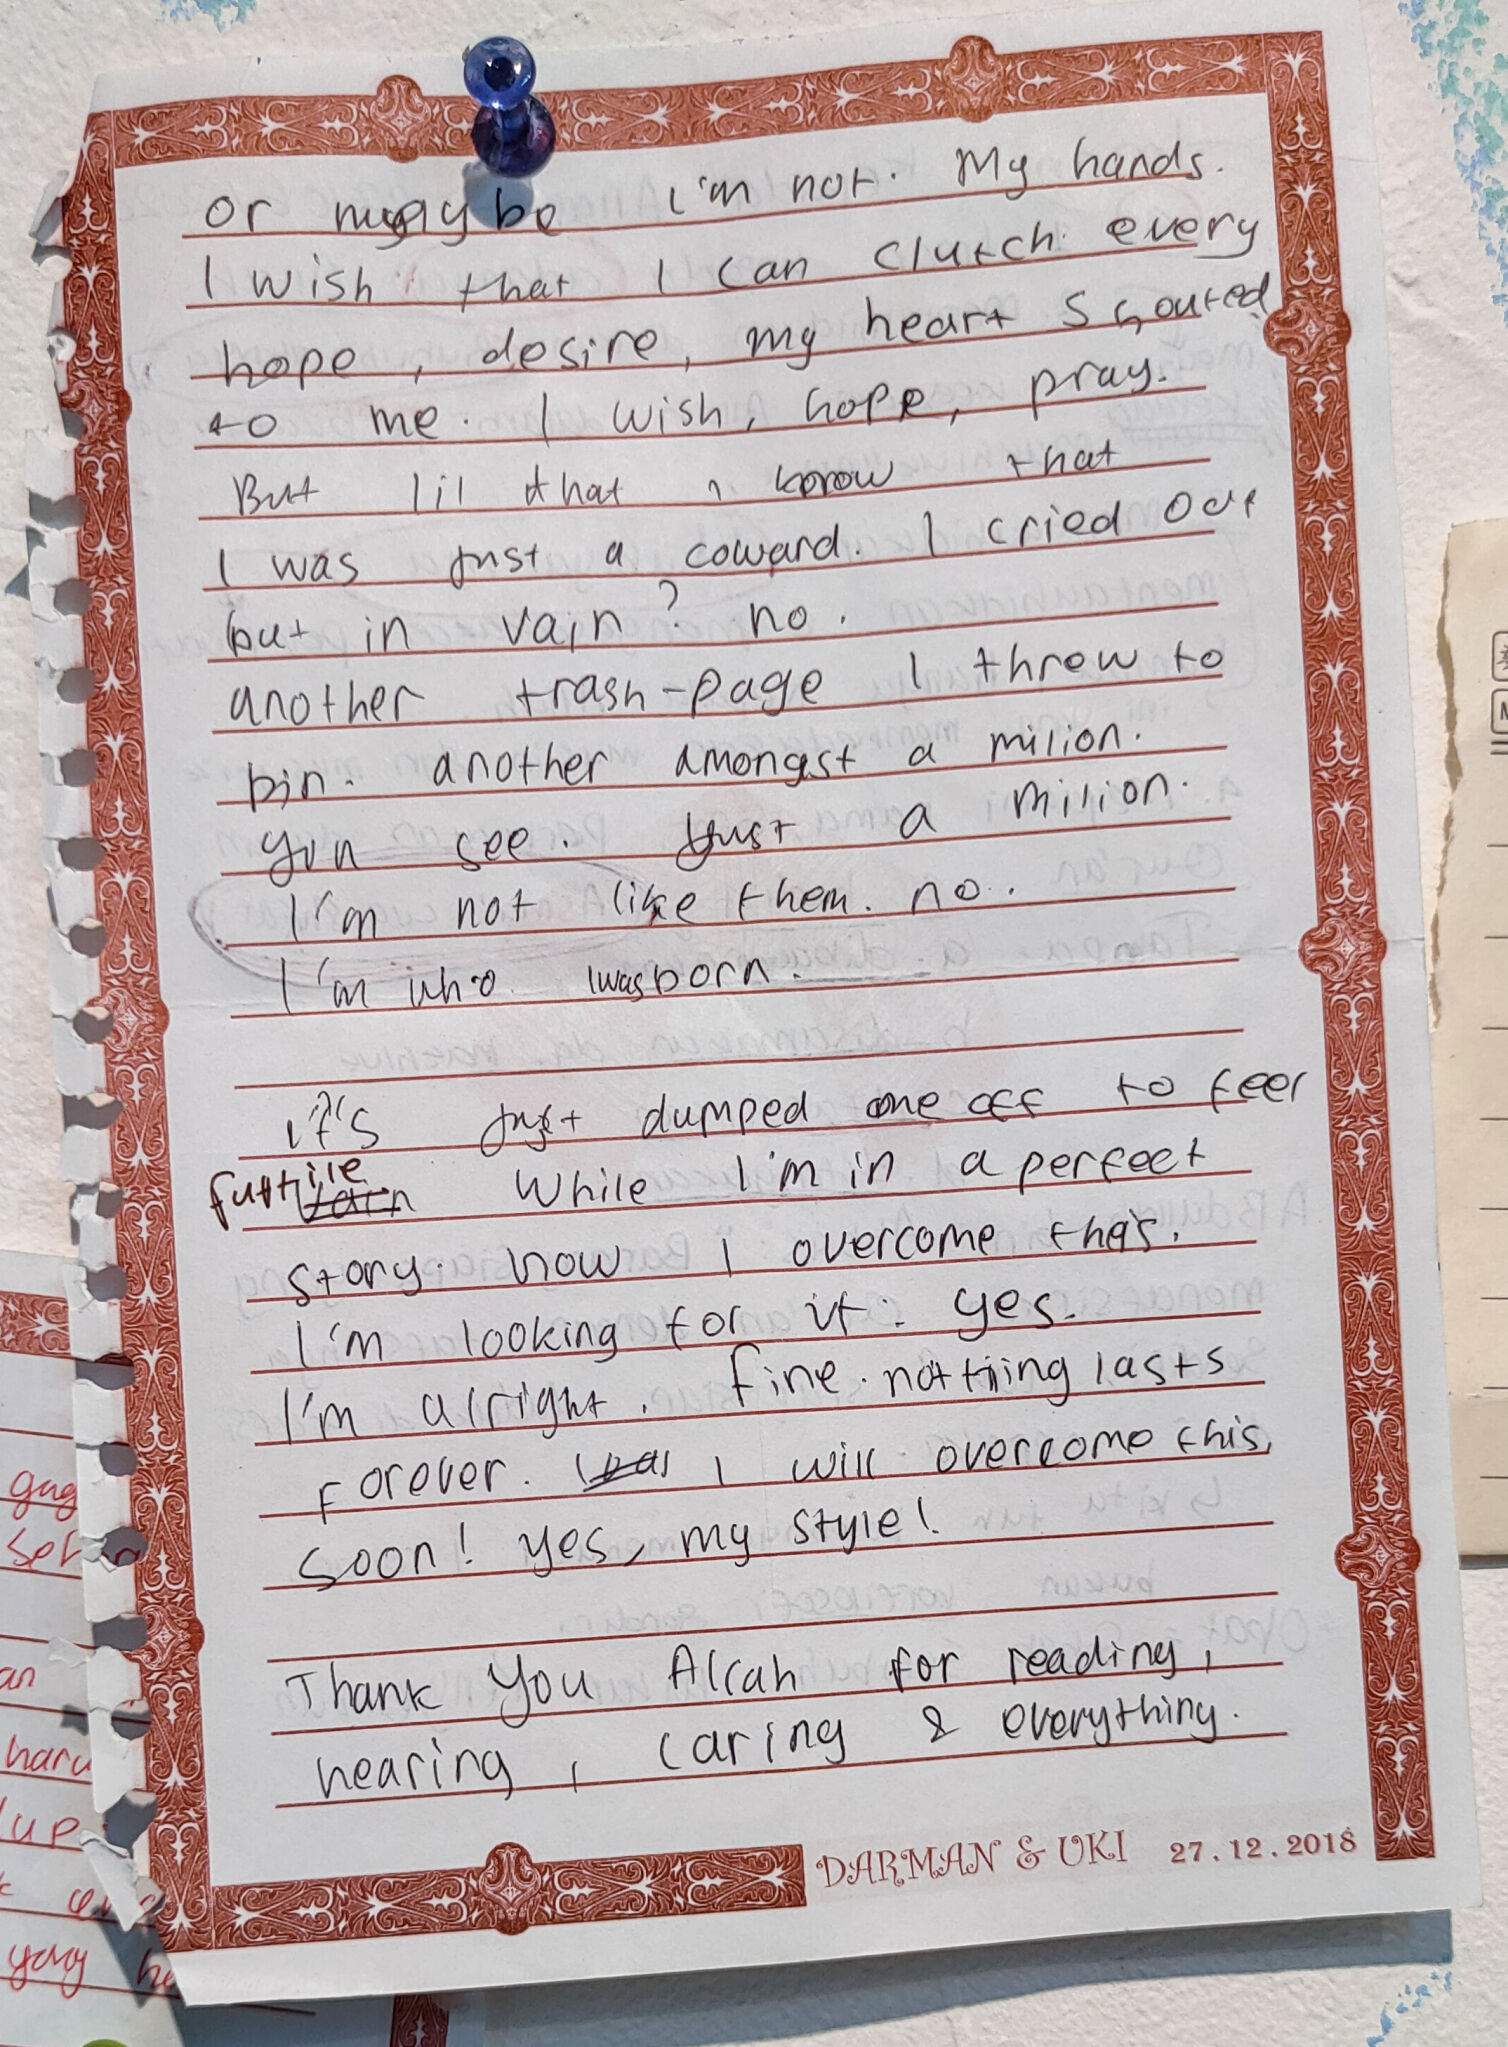 or maybe I'm not. My hands.
I wish that I can clutch every
hope, desire, my heart shouted
to me. I wish, hope, pray.
But lil that I know that
I was just a coward. I cried out
but in vain? no.
another trash-page I threw to
bin. another amongst a milion.
you see. Just a milion.
I'm not like them. no.
I'm who I was born.
it's just dumped one off to feel
futtile While I'm in a perfect
story. how I overcome this.
I'm looking for it. yes.
I'm alright. fine. nothing lasts
Forever. I will overcome this,
soon! yes, my style!
Thank You Allah for reading,
hearing, caring & everything.
DARMAN & UKI 27.12.2018
gag
an
haru
up
yang he